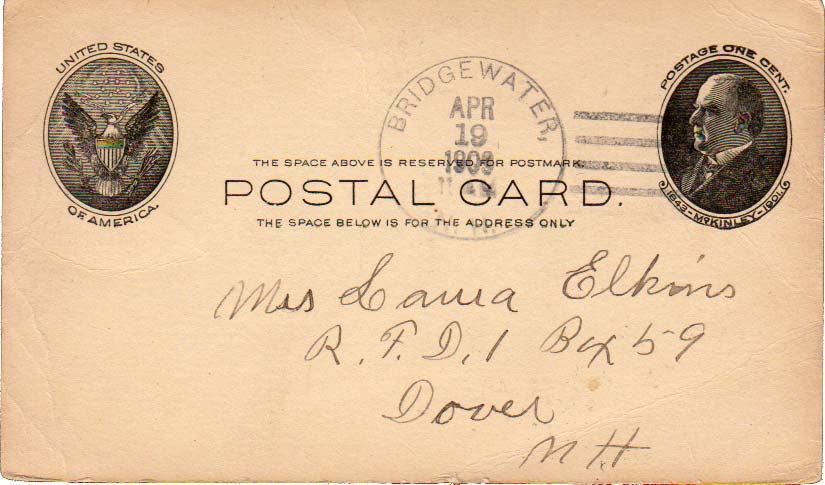 UNITED STATES
OF AMERICA.
BRIDGEWATER,
APR
19
POSTAGE ONE CENT.
1843-McKINLEY-1901.
THE SPACE ABOVE IS RESERVED FOR POSTMARK.
POSTAL CARD.
THE SPACE BELOW IS FOR THE ADDRESS ONLY
Mrs Laura Elkins
R. F. D. 1 Box 59
Dover
N. H